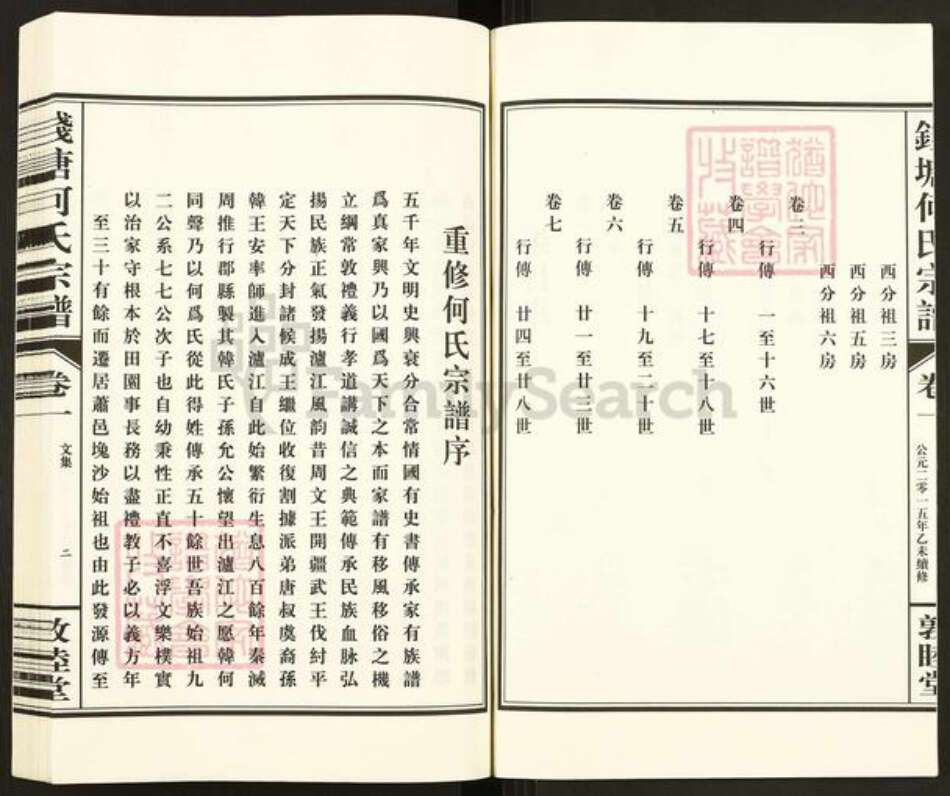 錢塘何氏宗譜
卷一
公元二零一五年乙未續修
敦睦堂
西分祖三房
西分祖五房
西分祖六房
卷三
行傳 一至十六世
卷四
行傳 十七至十八世
卷五
行傳 十九至二十世
卷六
行傳 廿一至廿三世
卷七
行傳 廿四至廿八世
重修何氏宗譜序
五千年文明史興衰分合常情國有史書傳承家有族譜
爲真家興乃以國爲天下之本而家譜有移風移俗之機
立綱常敦禮義行孝道講誠信之典範傳承民族血脉弘
揚民族正氣發揚瀘江風韵昔周文王開疆武王伐紂平
定天下分封諸候成王繼位收復割據派弟唐叔虞裔孫
韓王安率師進入瀘江自此始繁衍生息八百餘年秦滅
周推行郡縣製其韓氏子孫允公懷望出瀘江之愿韓何
同聲乃以何爲氏從此得姓傳承五十餘世吾族始祖九
二公系七七公次子也自幼秉性正直不喜浮文樂樸實
以治家守根本於田園事長務以盡禮教子必以義方年
至三十有餘而遷居蕭邑塊沙始祖也由此發源傳至
錢塘何氏宗譜
卷一
文集
二
敦睦堂
FamilySearch